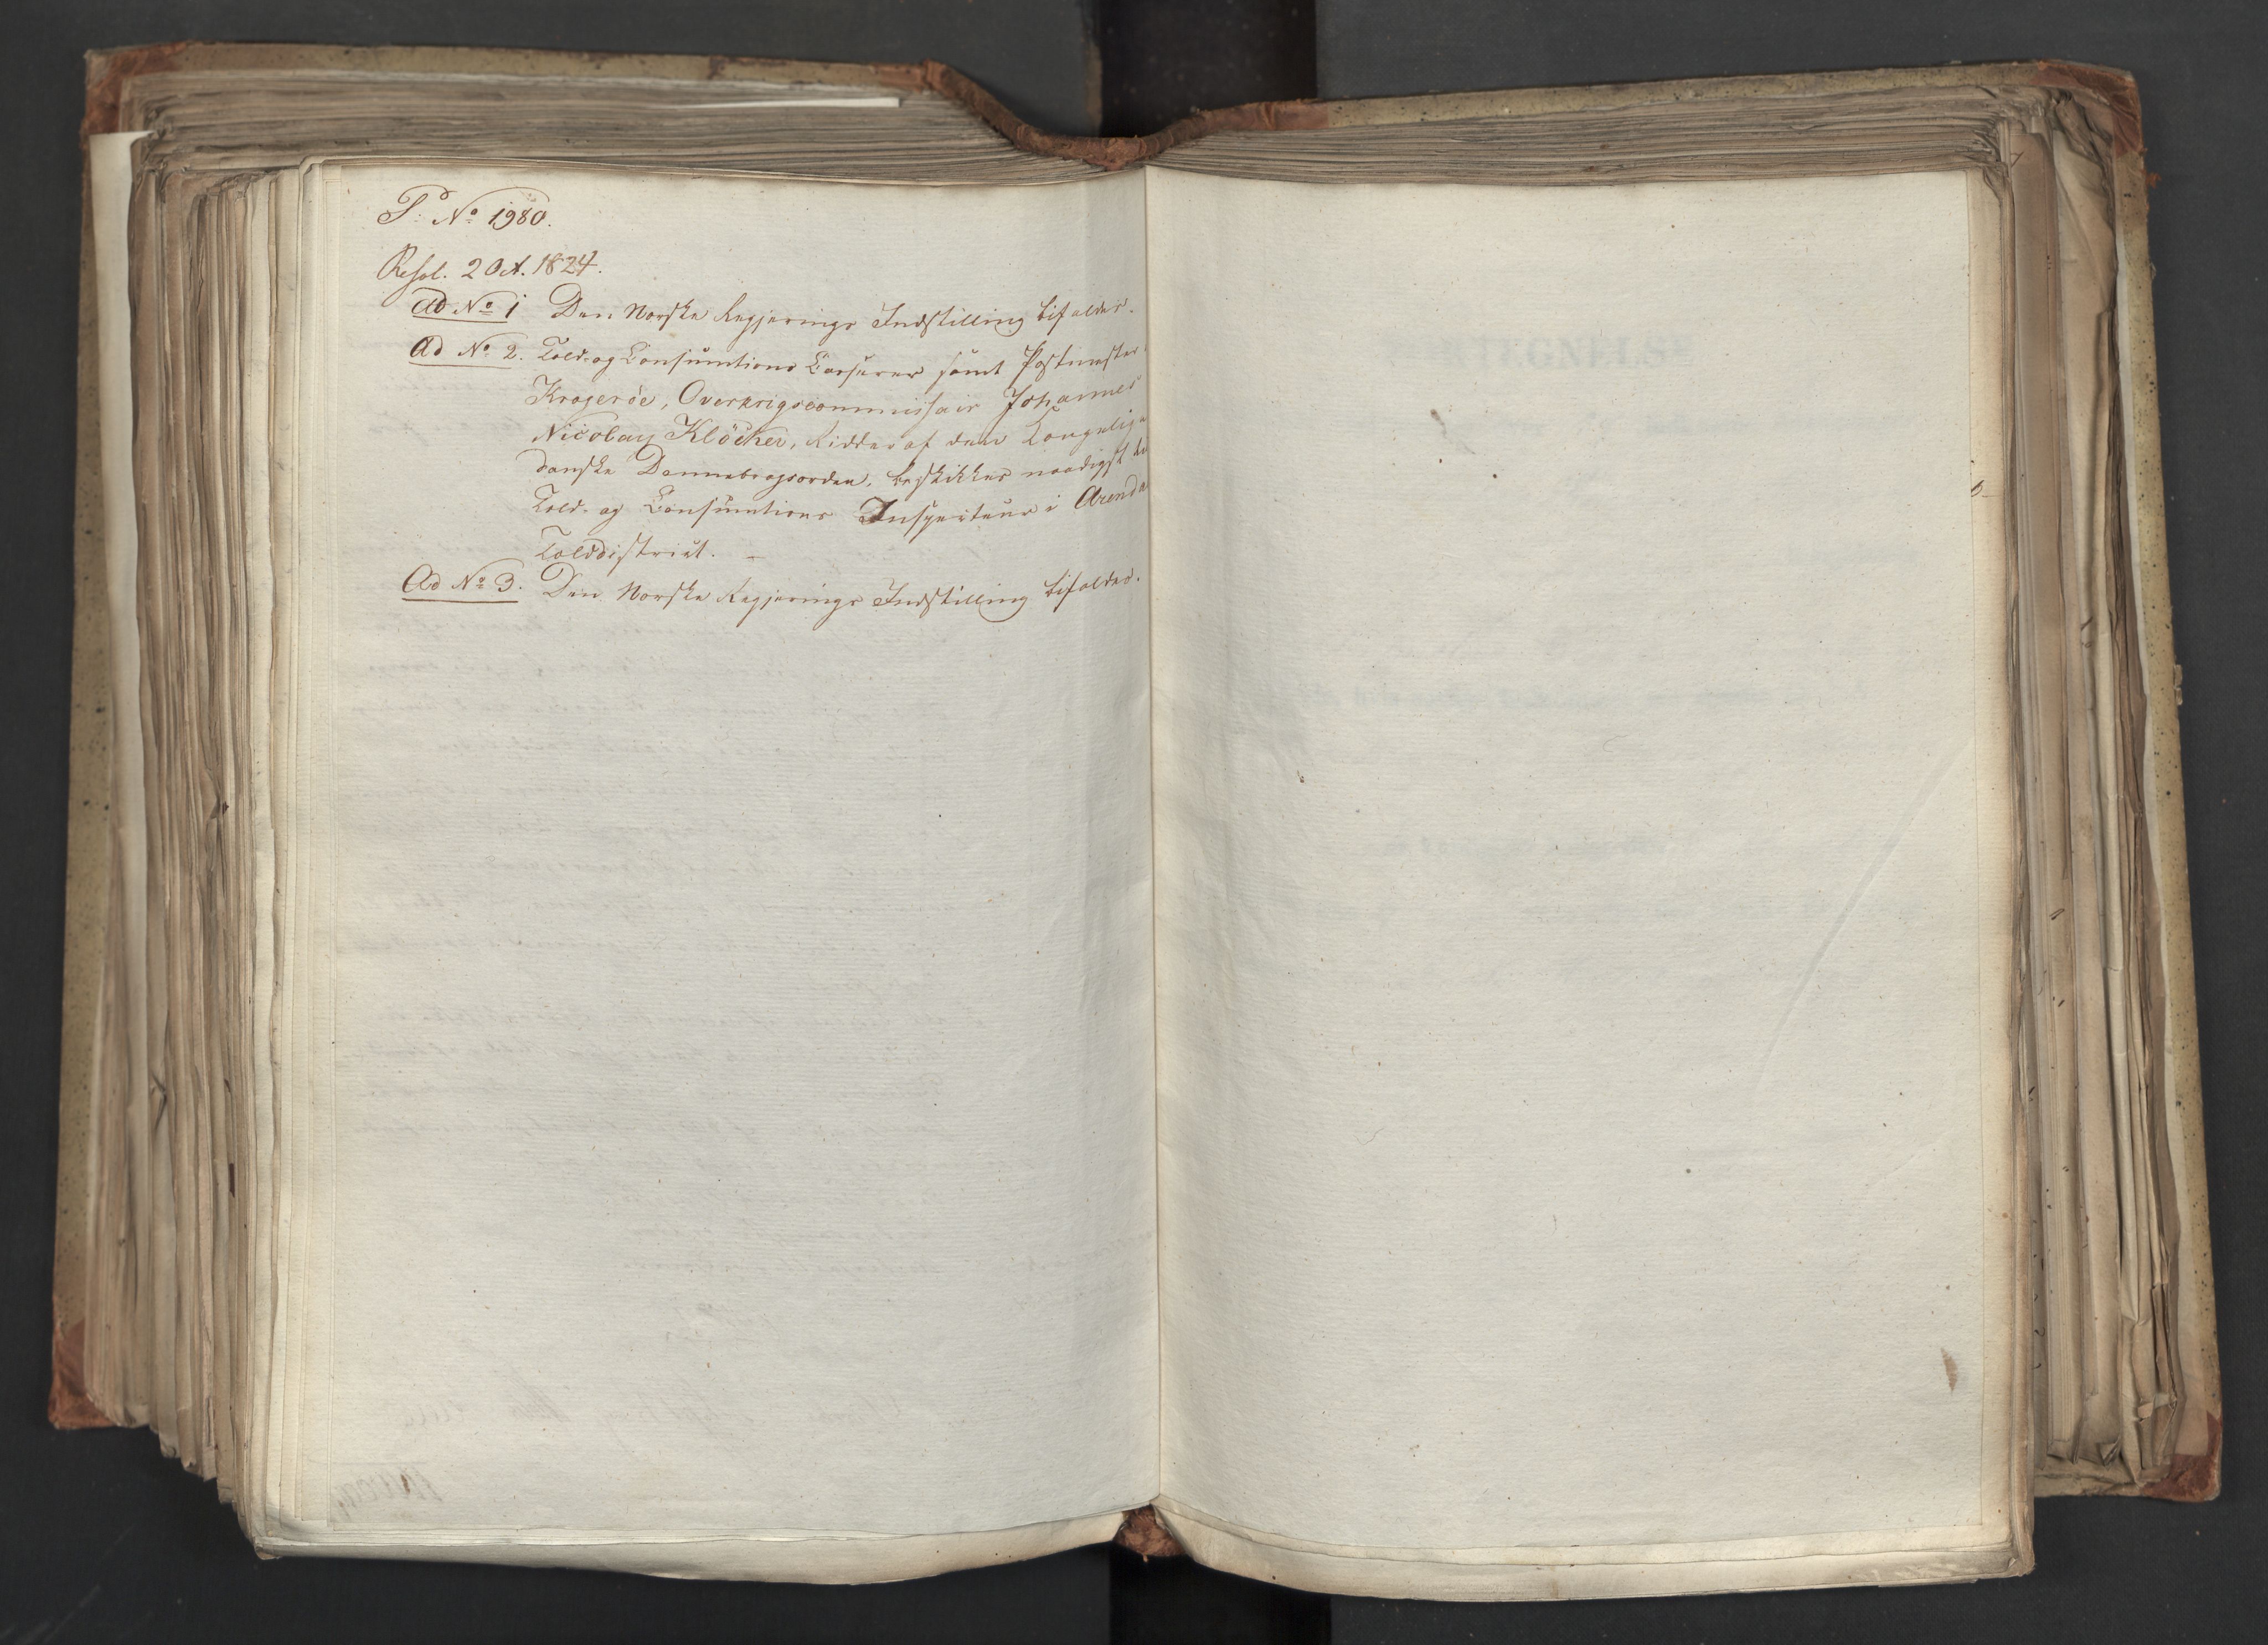 P: No 1980.
Resol. 2 Oct. 1824.
Ad No 1 Den Norske Regjerings Indstilling bifaldes.
Ad No 2. Told- og Consumtions Casserer samt Postmester i
Kragerøe, Overkrigscommissair Johannes
Nicolay Klöcker, Ridder af den Kongelige
danske Dannebrogsorden, beskikkes naadigst til
Told- og Consumtions Inspecteur i Arendals
Tolddistrict. –
Ad No 3. Den Norske Regjerings Indstilling bifaldes.